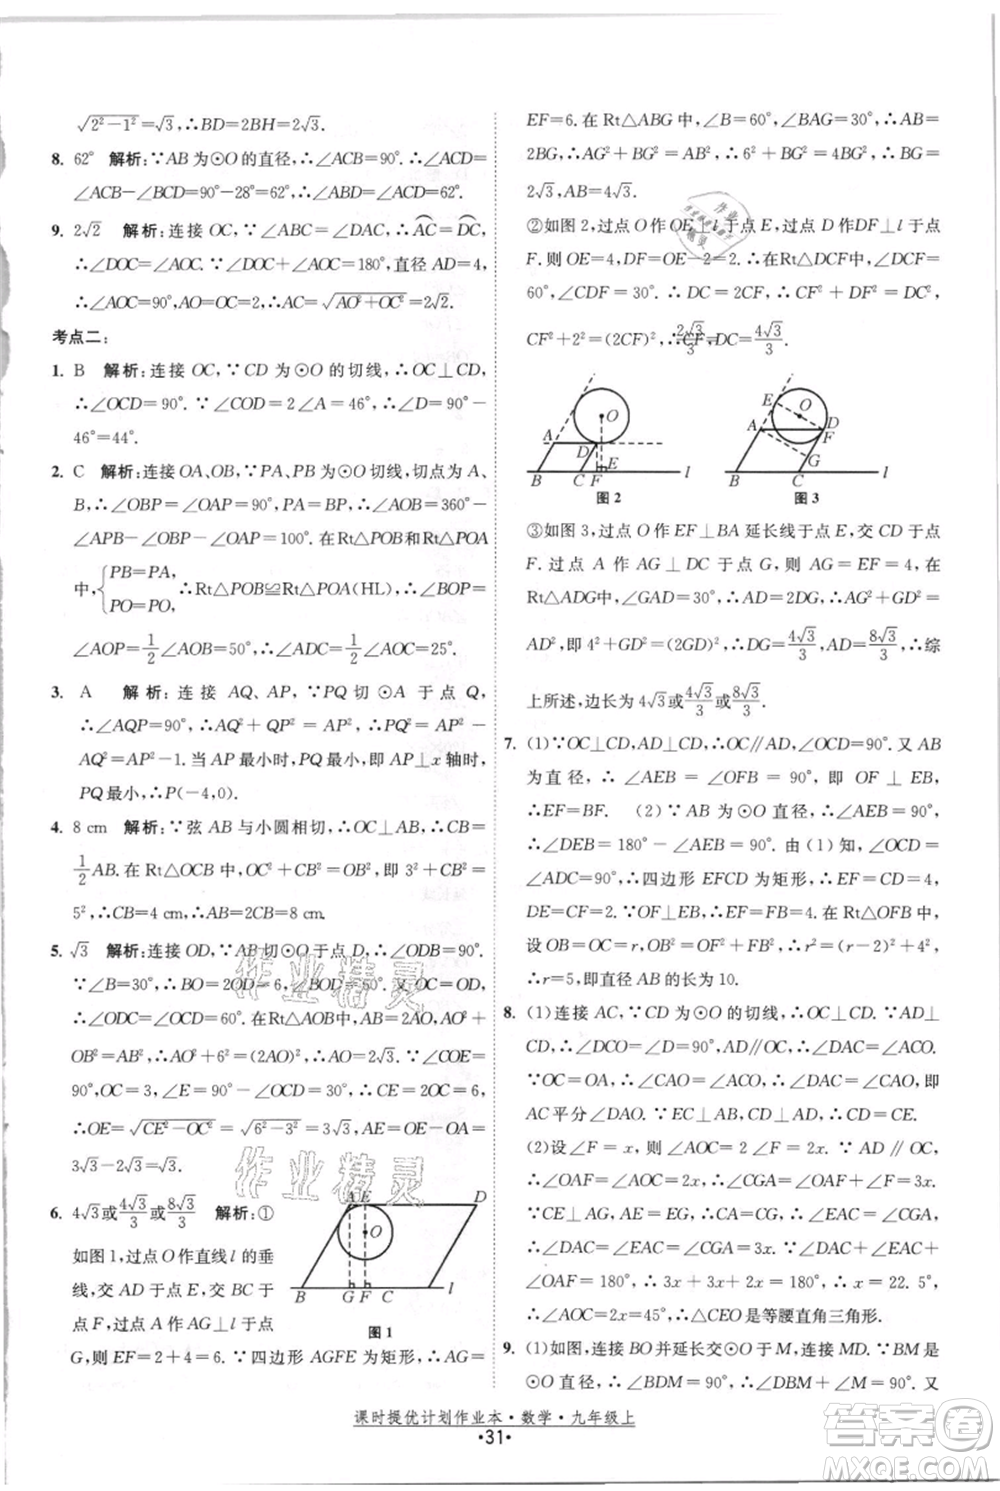 √(2²−1²)=√3,∴BD=2BH=2√3.
8. 62° 解析:∵AB为⊙O的直径,∴∠ACB=90°.∴
∠ACB-∠BCD=90°-28°=62°,∴∠ABD=∠ACD=62°.
9. 2√2 解析:连接OC,∵∠ABC=∠DAC,∴AC=DC,
∴∠DOC=∠AOC.∵∠DOC+∠AOC=180°,直径AD=4,
∴∠AOC=90°,AO=OC=2.∴AC=√(AO²+OC²)=2√2.
考点二:
1. B 解析:连接OC,∵CD为⊙O的切线,∴OC⊥CD,
∴∠OCD=90°.∵∠COD=2∠A=46°,∴∠D=90°-
46°=44°.
2. C 解析:连接OA,OB,∵PA,PB为⊙O切线,切点为A、
B,∴∠OBP=∠OAP=90°,PA=BP.∴∠AOB=360°-
∠APB-∠OAP-∠OBP=100°.在Rt△POB和Rt△POA
中,{PB=PA,
PO=PO,
∴Rt△POB≌Rt△POA(HL),∴∠BOP=
∠AOP=1/2∠AOB=50°,∴∠ADC=1/2∠AOC=25°.
3. A 解析:连接AQ,AP,∵PQ切⊙A于点Q,
∴∠AQP=90°,∴AQ²+QP²=AP²,∴PQ²=AP²-
AQ²=AP²-1.当AP最小时,PQ最小,即AP⊥x轴时,
PQ最小,∴P(-4,0).
4. 8 cm 解析:∵弦AB与小圆相切,∴OC⊥AB,∴CB=
1/2AB.在Rt△OCB中,OC²+CB²=OB²,∴3²+CB²=
5²,∴CB=4 cm,∴AB=2CB=8 cm.
5. √3 解析:连接OD,∵AB切⊙O于点D,∴∠ODB=90°.
∵∠B=30°,∴BO=2OD=6,∠BOD=60°.∵OC=OD,
∴∠ODC=∠OCD=30°.在Rt△AOB中,∵AO²+
OB²=AB²,∴AO²+6²=(2AO)²,∴AO=2√3.∵∠COE=
90°,OC=3,∠E=90°-∠OCD=30°,∴CE=2OC=6,
∴OE=√(CE²−OC²)=√(6²−3²)=3√3,AE=OE-OA=
3√3-2√3=√3.
6. 4√3或4√3/3或8√3/3 解析:①
如图1,过点O作直线l的垂
线,交AD于点E,交BC于
点F,过点A作AG⊥l于点
G,则EF=2+4=6.∵四边形AGFE为矩形,∴AG=
A E D
O
B G F C l
图1
EF=6.在Rt△ABG中,∠B=60°,∠BAG=30°,∴AB=
2BG.∵AG²+BG²=AB²,∴6²+BG²=(2BG)²,∴BG=
2√3,∴AB=4√3.
②如图2,过点O作OE⊥l于点E,过点D作DF⊥l于
点F,则DF=OE=4-2=2.在Rt△CDF中,∠DCF=
60°,∠CDF=30°,∴DC=2CF.∵CF²+DF²=DC²,∴
CF²+2²=(2CF)²,∴CF=2√3/3,∴DC=4√3/3.
O
A D
E
B C F l
图2
E
O
A D
F
G
B C l
图3
③如图3,过点O作EF⊥BA延长线于点E,交CD于点
F.过点A作AG⊥DC于点G,∴AG=EF=4,在
Rt△ADG中,∠GAD=30°,∴AD=2GD.∵AG²+GD²=
AD²,即4²+GD²=(2GD)²,∴DG=4√3/3,AD=8√3/3,∴综
上所述,边长为4√3或4√3/3或8√3/3.
7. (1)∵OC⊥CD,AD⊥CD,∴OC∥AD,∠OCD=90°.又AB
为直径,∴∠AEB=∠OFB=90°,即OF⊥EB,
∴EF=BF. (2)∵AB为⊙O直径,∴∠AEB=90°,
∴∠DEB=180°-∠AEB=90°.由(1)知,∠OCD=
90°,∠OFE=90°,∴四边形EFCD为矩形,∴
DE=CF=2.∵OC⊥EB,∴FB=1/2EB=4.在Rt△OFB中,
设OB=OC=r,OF=r-2,∴OF²+FB²=OB²,∴(r-2)²+4²=r²,
∴r=5,即直径AB的长为10.
8. (1)连接AC,∵CD为⊙O的切线,∴OC⊥CD.∵AD⊥
CD,∴∠OCD=∠ADC=90°,∴AD∥OC,∴∠DAC=∠ACO.
∵OC=OA,∴∠CAO=∠ACO,∴∠DAC=∠CAO,即
AC平分∠DAO.∵CE⊥AB,∴∠CEA=90°,∴CD=CE.
(2)设∠F=x,则∠AOC=2∠F=2x.∵AD∥OC,∴
∠OAF=∠AOC=2x,∴∠CGA=∠OAF+∠F=
3x.∵AF=CG,∴∠EAG=∠CGA=3x.∵∠DAC+
∠EAC+∠OAF=180°,∴3x+3x+2x=180°,∴x=22.5°,
∴∠AOC=2x=45°,∴△CEO是等腰直角三角形.
9. (1)如图,连接BO并延长交⊙O于M,连接MD.∵BM
为直径,∴∠MDB=90°,∴∠M+∠MBD=90°.又
课时提优计划作业本·数学·九年级上
·31·
作业精灵
作业精灵
答案圈
MXQE.COM